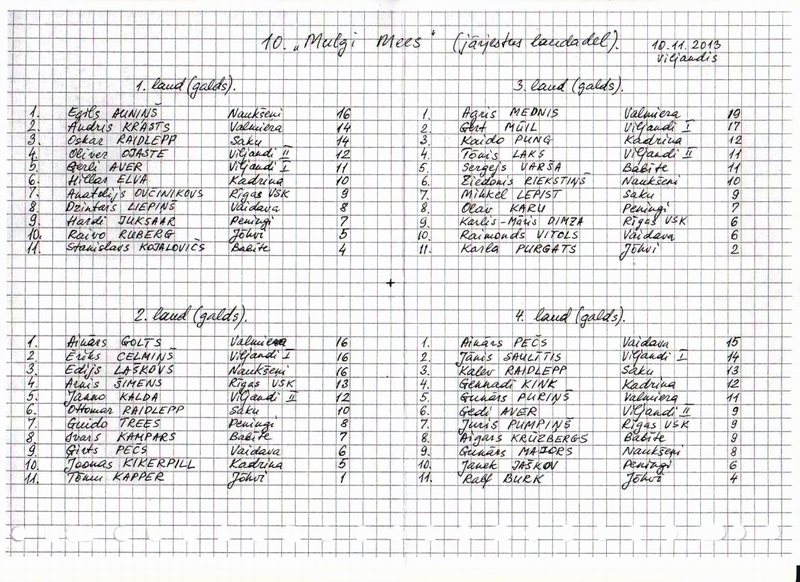 10. „Mulgi Mees“ (järjestus laudadel).
10.11.2013
Viljandis
1. laud (galds).
1. Egils AUNIŅŠ Naukšēni 16
2. Andris KRASTS Valmiera 14
3. Oskar RAIDLEPP Saku 14
4. Oliver OJASTE Viljandi II 12
5. Gerli AVER Viljandi I 11
6. Hillar ELVA Kadrina 10
7. Anatolijs OVČINIKOVS Rīgas VSK 9
8. Dzintars LIEPIŅŠ Vaidava 8
9. Hardi JUKSAAR Peningi 7
10. Raivo RUBERG Jõhvi 5
11. Staņislavs KOJALOVIČS Babīte 4
2. laud (galds).
1. Ainārs GOLTS Valmiera 16
2. Ēriks CELMIŅŠ Viljandi I 16
3. Edijs LAŠKOVS Naukšēni 16
4. Arnis ŠIMENS Rīgas VSK 13
5. Janno KALDA Viljandi II 12
6. Ottomar RAIDLEPP Saku 10
7. Guido TREES Peningi 8
8. Ivars KAMPARS Babīte 7
9. Ģirts PEČS Vaidava 6
10. Joonas KIKERPILL Kadrina 5
11. Tõnu KAPPER Jõhvi 1
3. laud (galds).
1. Agris MEDNIS Valmiera 19
2. Gert MÜIL Viljandi I 17
3. Kaido PUNG Kadrina 12
4. Tõnis LAKS Viljandi II 11
5. Sergejs VARŠA Babīte 11
6. Ziedonis RIEKSTIŅŠ Naukšēni 10
7. Mihkel LEPIST Saku 9
8. Olav KARU Peningi 7
9. Kārlis-Māris DIMZA Rīgas VSK 6
10. Raimonds VĪTOLS Vaidava 6
11. Karla PURGATS Jõhvi 2
4. laud (galds).
1. Ainārs PEČS Vaidava 15
2. Jānis SAULĪTIS Viljandi I 14
3. Kalev RAIDLEPP Saku 13
4. Gennadi KINK Kadrina 12
5. Gunārs PURIŅŠ Valmiera 11
6. Gedi AVER Viljandi II 9
7. Juris PUMPIŅŠ Rīgas VSK 9
8. Aigars KRŪZBERGS Babīte 9
9. Gunārs MAJORS Naukšēni 8
10. Janek JAŠKOV Peningi 6
11. Ralf BURK Jõhvi 4